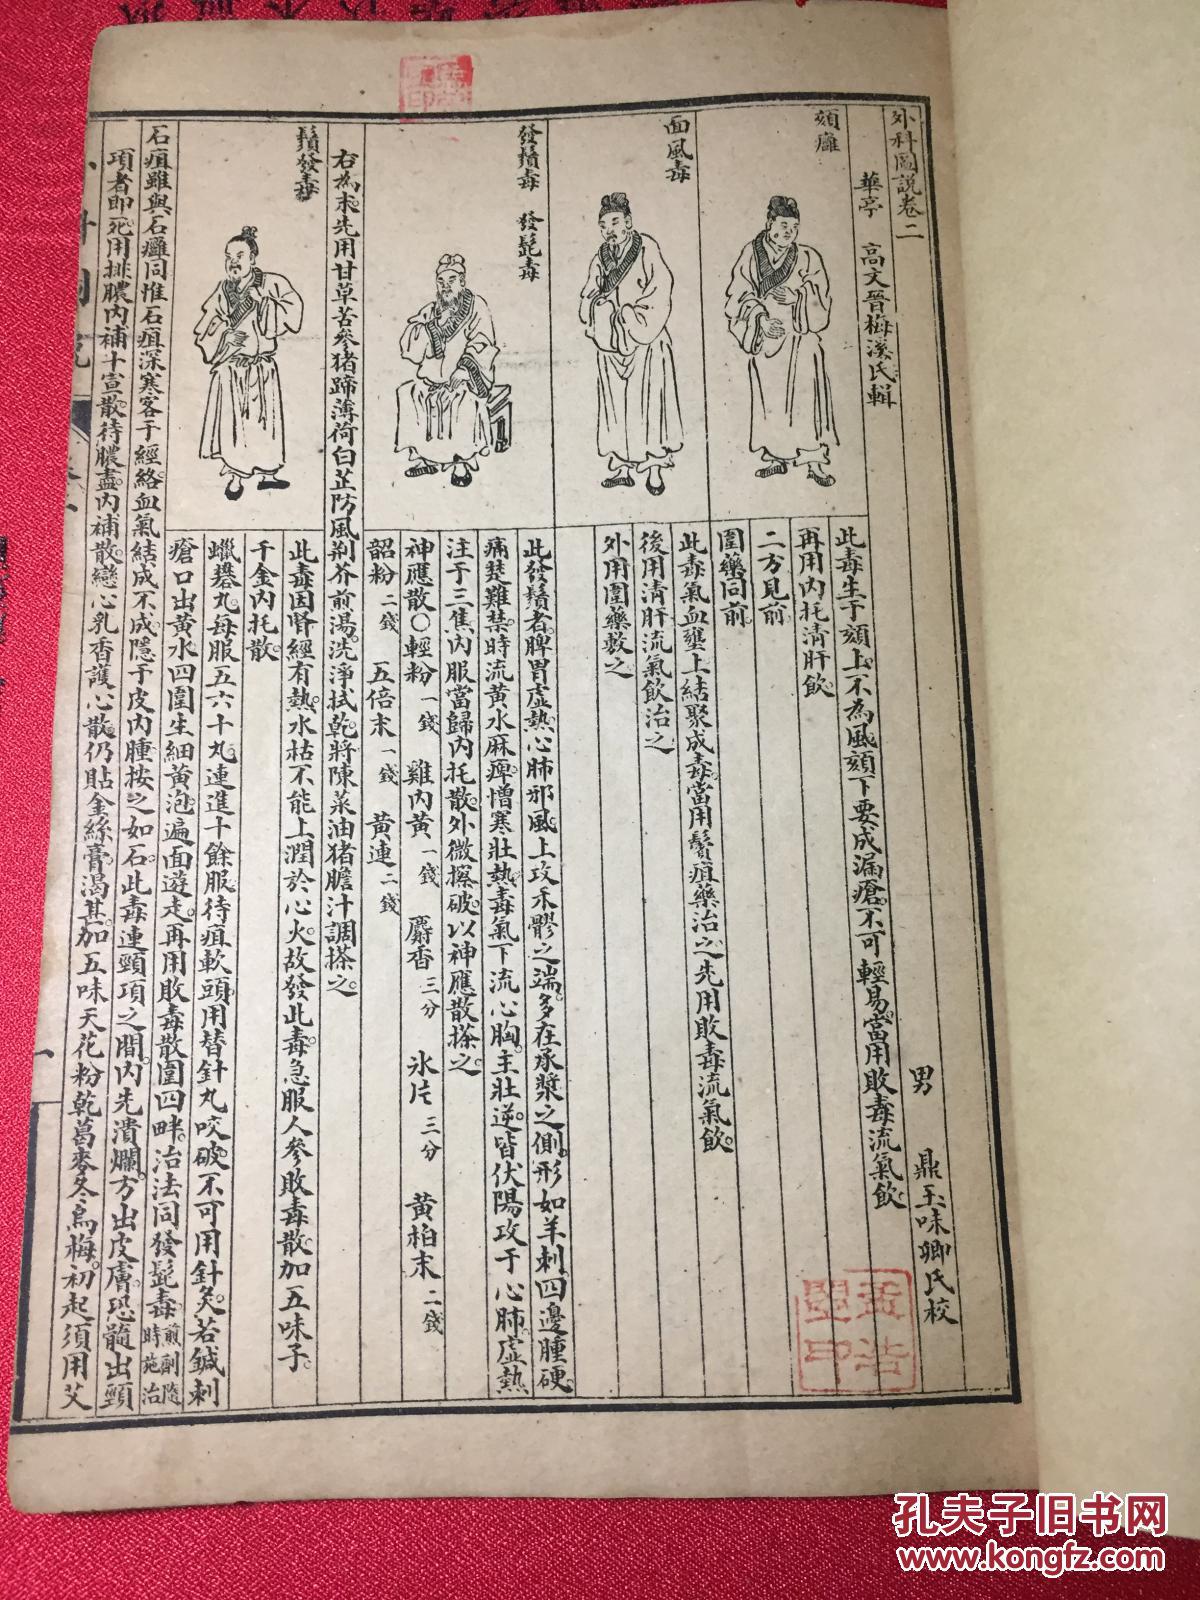 外科圖說卷二
華亭　高文晉梅溪氏輯
男　鼎玉味卿氏校
頰癰
此毒生于頰上不為風頰下要成漏瘡不可輕易當用敗毒流氣飲
再用內托清肝飲
二方見前
圍藥同前
面風毒
此毒氣血壅上結聚成毒當用鬢疽藥治之先用敗毒流氣飲
後用清肝流氣飲治之
外用圍藥敷之
發鬚毒　發髭毒
此發鬚者脾胃虛熱心肺邪風上攻禾髎之端多在承漿之側形如羊刺四邊腫硬
痛楚難禁時流黃水麻痺憎寒壯熱毒氣下流心胸主壯逆皆伏陽攻于心肺虛熱
注于三焦內服當歸內托散外微擦破以神應散搽之
神應散○輕粉一錢　雞內黃一錢　麝香三分　氷片三分　黃柏末二錢
韶粉二錢　五倍末一錢　黃連二錢
右為末先用甘草苦參猪蹄薄荷白芷防風荆芥煎湯洗淨拭乾將陳菜油猪膽汁調搽之
鬚發毒
此毒因腎經有熱水枯不能上潤於心火故發此毒急服人參敗毒散加五味子
千金內托散
蠟礬丸每服五六十丸連進十餘服待疽軟頭用替針丸咬破不可用針灸若鍼刺
瘡口出黃水四圍生細黃泡遍面遊走再用敗毒散圍四畔治法同發髭毒煎劑隨時施治
石疽雖與石癰同惟石疽深寒客于經絡血氣結成不成隱于皮內腫按之如石此毒連頸項之間內先潰爛方出皮膚恐髓出頸
項者即死用排膿內補十宣散待膿盡內補散戀心乳香護心散仍貼金絲膏渴甚加五味天花粉乾葛麥冬烏梅初起須用艾
一
孔夫子旧书网
www.kongfz.com